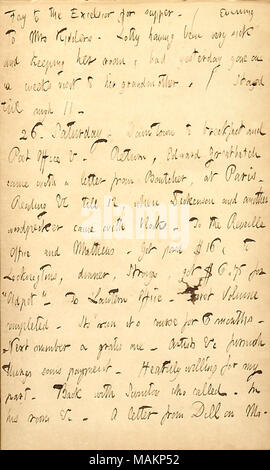 Fay to the Excelsior for supper. / Evening
to Mrs Kidders. Lotty having been very sick
and keeping her room, had yesterday gone on
a week's visit to her grandmother. / Stayed
till until 11.
26. Saturday. Downtown to breakfast and
Post Office &c. Return, Edward Greatbatch
came with a letter from Boutcher, at Paris.
Reading &c till 12, when Dickenson and another
woodpecker came with blok. To the Reveille
Office and Matthews. Get paid $16. To
Lockingtons, dinner, Strong, get $6.75 for
"Adept". To Scranton Office. First Volume
completed. It's run its course for 6 months.
Next number a gratis one. Artists &c furnish
things sans payment. Heartily willing for my
part. Back with who called. In
his room &c. A letter from Dillon Ma-
alamy
MAKP52